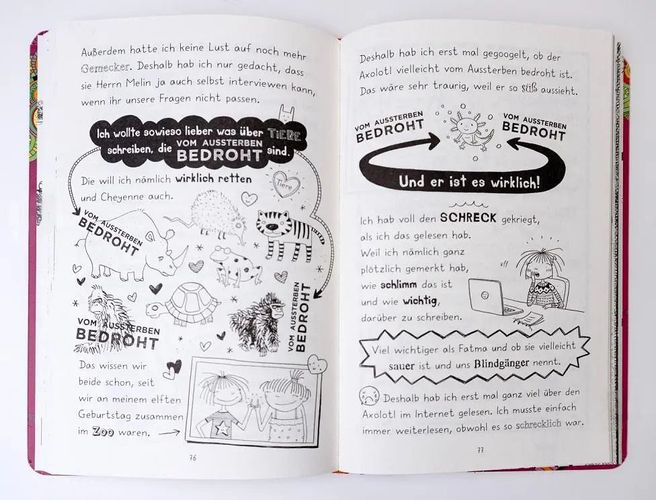 Außerdem hatte ich keine Lust auf noch mehr
Gemecker. Deshalb hab ich nur gedacht, dass
sie Herrn Melin ja auch selbst interviewen kann,
wenn ihr unsere Fragen nicht passen.
Ich wollte sowieso lieber was über TIERE
schreiben, die VOM AUSSTERBEN
BEDROHT sind.
Die will ich nämlich wirklich retten
und Cheyenne auch.
Tiere
VOM AUSSTERBEN
BEDROHT
VOM AUSSTERBEN
BEDROHT
VOM AUSSTERBEN
BEDROHT
Das wissen wir
beide schon, seit
wir an meinem elften
Geburtstag zusammen
im Zoo waren.
76
Deshalb hab ich erst mal gegoogelt, ob der
Axolotl vielleicht vom Aussterben bedroht ist.
Das wäre sehr traurig, weil er so süß aussieht.
VOM AUSSTERBEN
BEDROHT
VOM AUSSTERBEN
BEDROHT
Und er ist es wirklich!
Ich hab voll den SCHRECK gekriegt,
als ich das gelesen hab.
Weil ich nämlich ganz
plötzlich gemerkt hab,
wie schlimm das ist
und wie wichtig,
darüber zu schreiben.
Viel wichtiger als Fatma und ob sie vielleicht
sauer ist und uns Blindgänger nennt.
Deshalb hab ich erst mal ganz viel über den
Axolotl im Internet gelesen. Ich musste einfach
immer weiterlesen, obwohl es so schrecklich war.
77